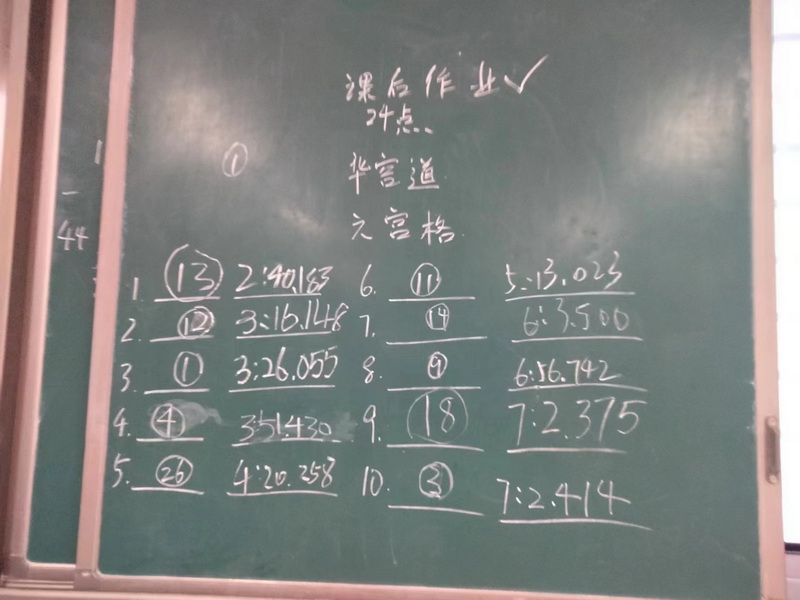 课后作业✓
24点
①
华容道
六宫格
44
1. ⑬ 2:40.183 6. ⑪ 5:13.023
2. ⑫ 3:16.148 7. ⑭ 6:3.500
3. ① 3:26.055 8. ⑨ 6:56.742
4. ④ 3:51.430 9. ⑱ 7:2.375
5. ㉖ 4:20.258 10. ③ 7:2.414